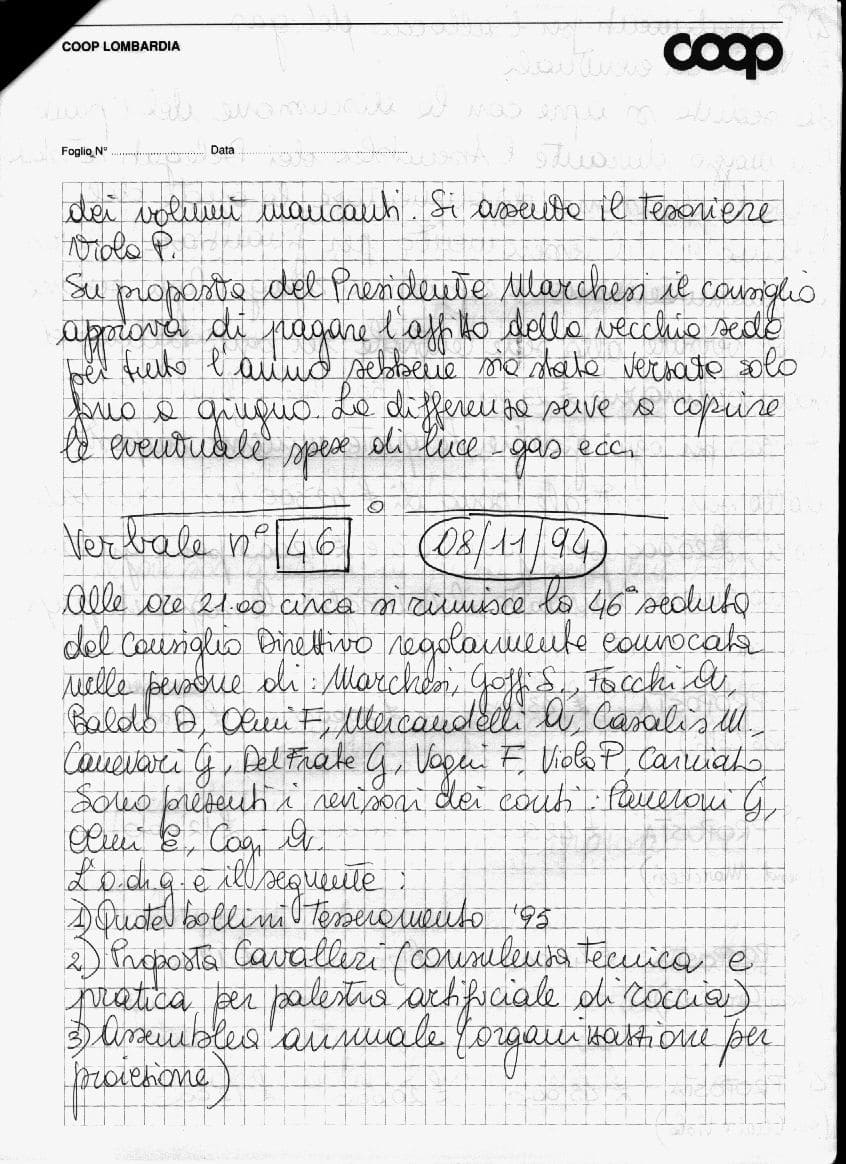 COOP LOMBARDIA
coop
Foglio N° Data
dei volumi mancanti. Si assenta il Tesoriere
Viola P.
Su proposta del Presidente Marchesi il consiglio
approva di pagare l'affitto della vecchia sede
per tutto l'anno sebbene sia stata versata solo
fino a giugno. La differenza serve a coprire
le eventuale spese di luce - gas ecc.
Verbale n° 46 08/11/94
Alle ore 21.00 circa si riunisce la 46ª seduta
del Consiglio Direttivo regolarmente convocata
nelle persone di: Marchesi, Goffi S., Facchi A,
Baldo D, Olmi F, Mercandelli A, Casalis M.,
Canevari G, Del Frate G, Vagni F, Viola P, Carniato
Sono presenti i revisori dei conti: Paneroni G,
Olmi E, Cogi A.
L'o.d.g. è il seguente:
1) Quote bollini Tesseramento '95
2) Proposta Cavalleri (consulenza tecnica e
pratica per palestra artificiale di roccia)
3) Assemblea annuale (organizzazione per
proiezione)